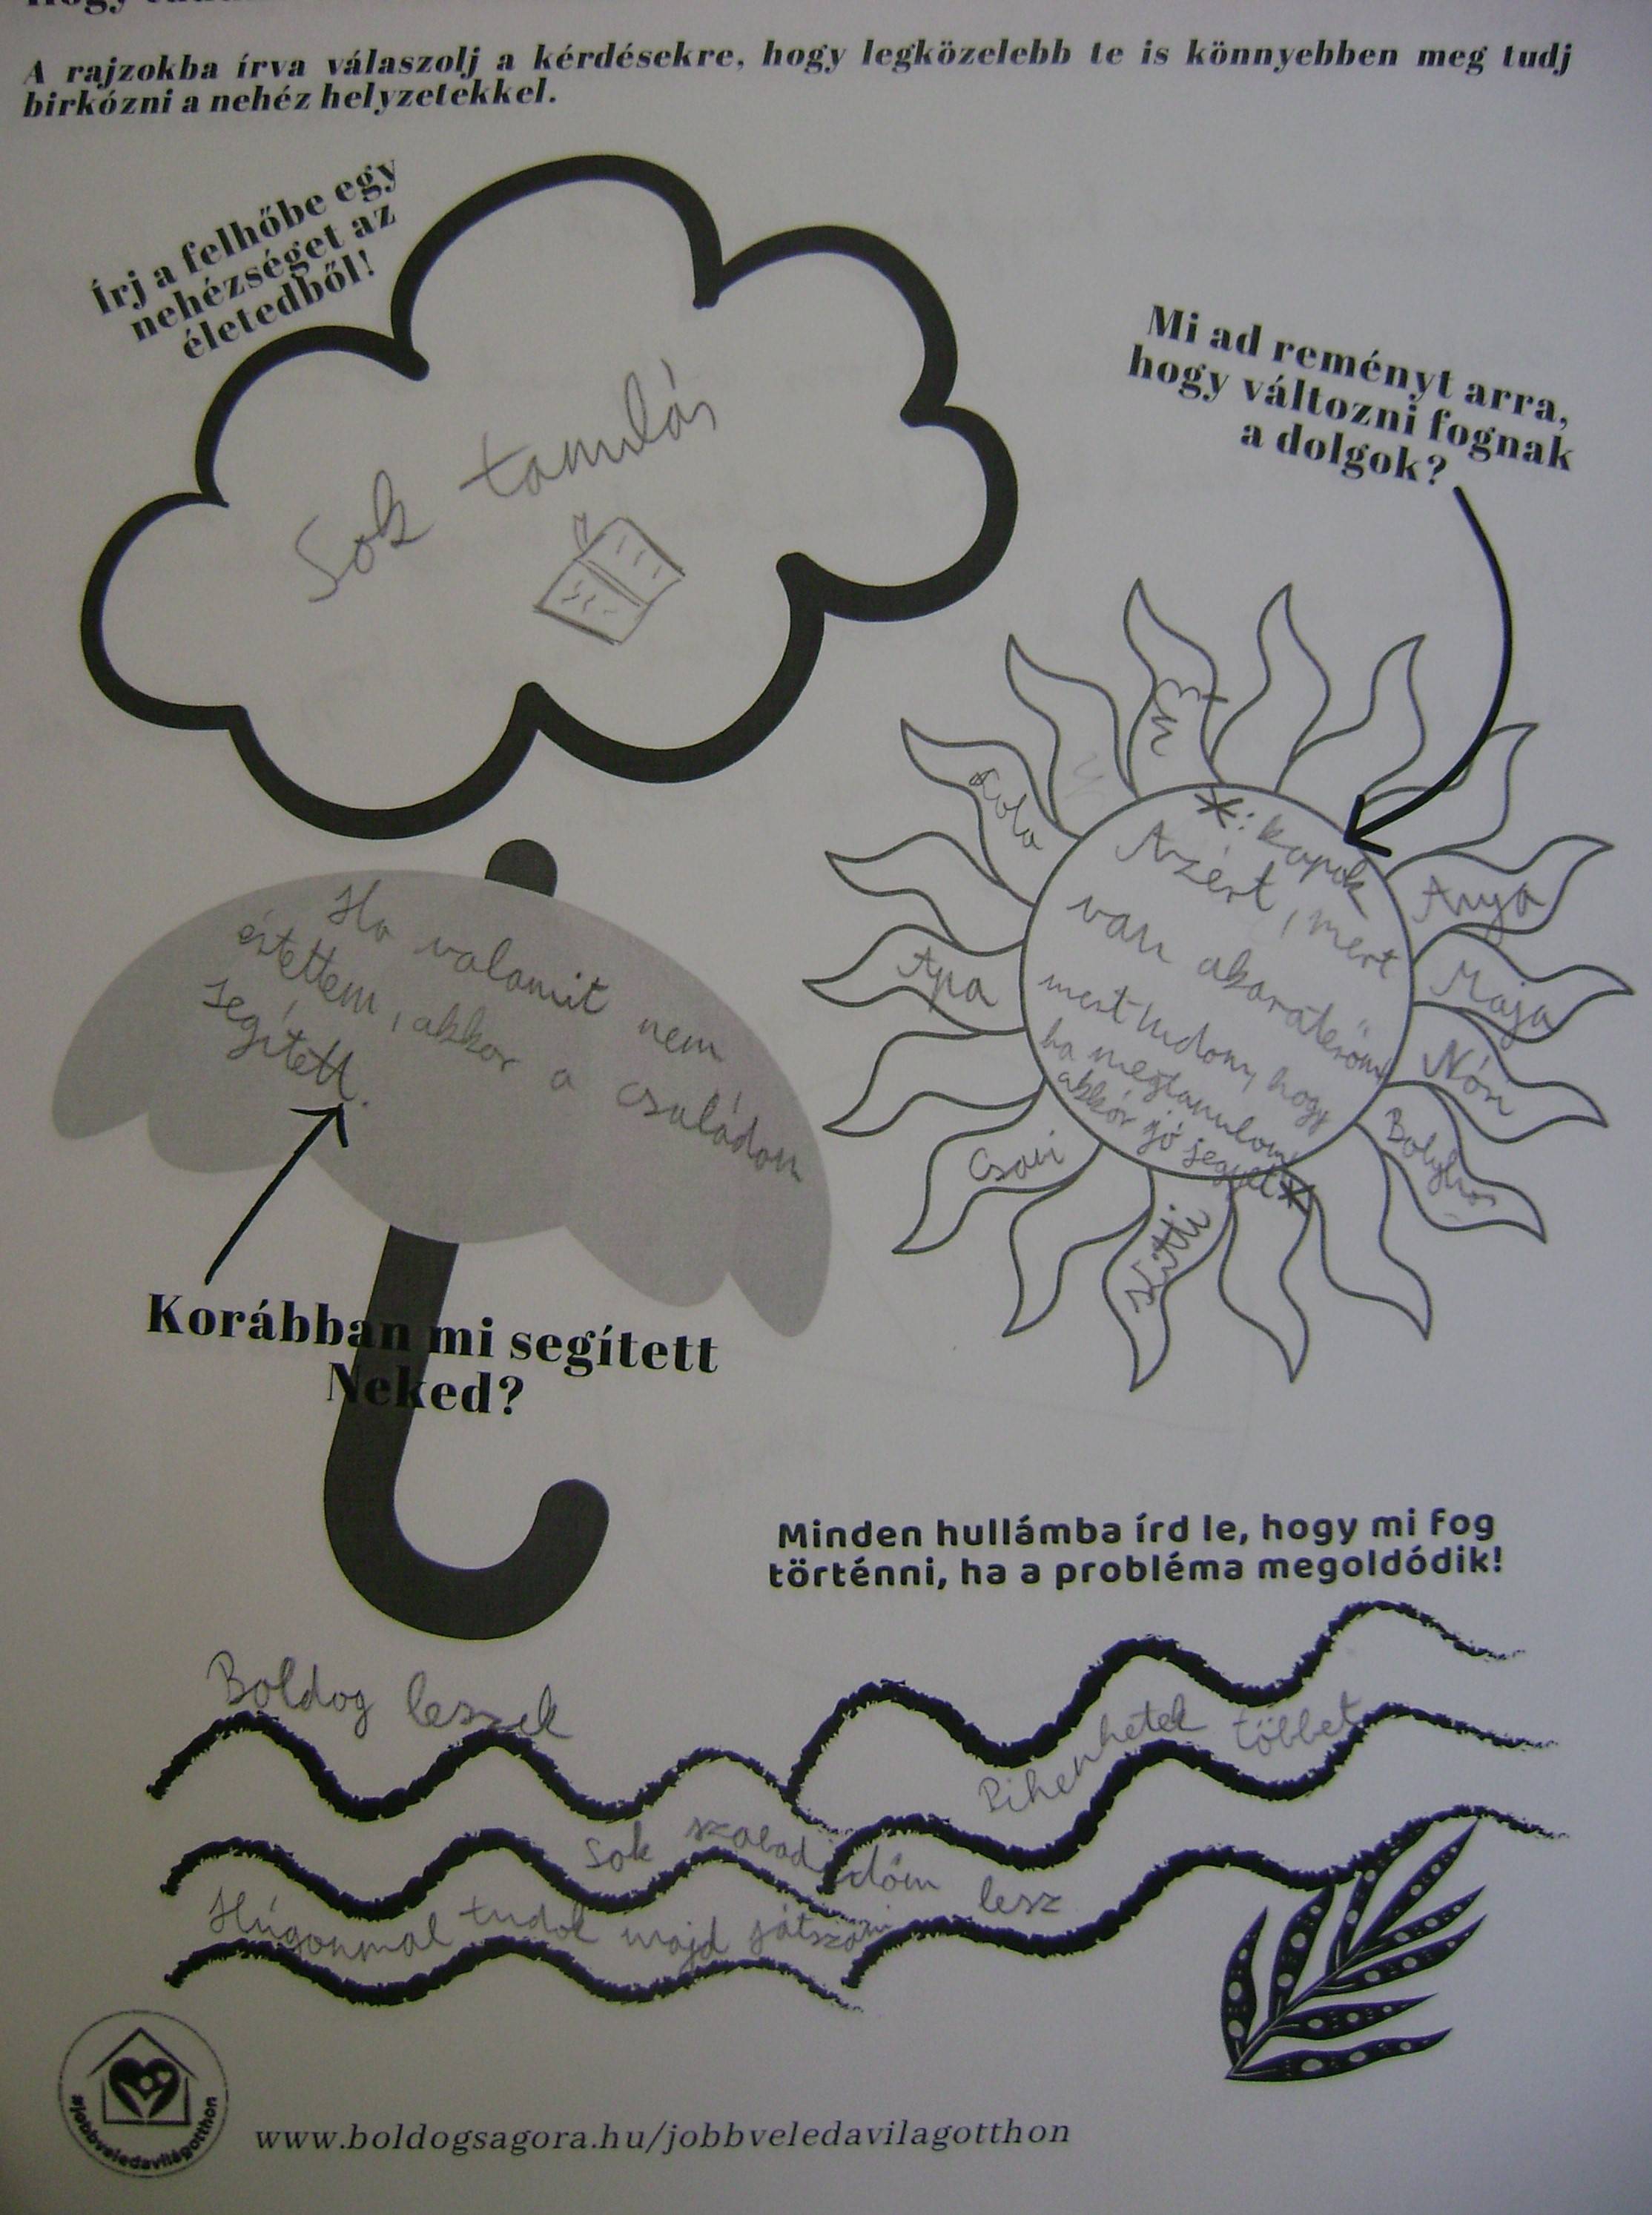 A rajzokba írva válaszolj a kérdésekre, hogy legközelebb te is könnyebben meg tudj
birkózni a nehéz helyzetekkel.
Írj a felhőbe egy
nehézséget az
életedből!
Sok tanulás
Mi ad reményt arra,
hogy változni fognak
a dolgok?
*: kapok
Azért, mert
van akaraterőm,
mert tudom, hogy
ha megtanulom
akkor jó jegyet*
Anya
Maja
Nóri
Bolyhos
Kitti
Csabi
Apa
Lola
Ha valamit nem
értettem, akkor a családom
segített.
Korábban mi segített
Neked?
Minden hullámba írd le, hogy mi fog
történni, ha a probléma megoldódik!
Boldog leszek
Pihenhetek többet
Sok szabadidőm lesz
Húgommal tudok majd játszani
#jobbveledavilágotthon
www.boldogsagora.hu/jobbveledavilagotthon